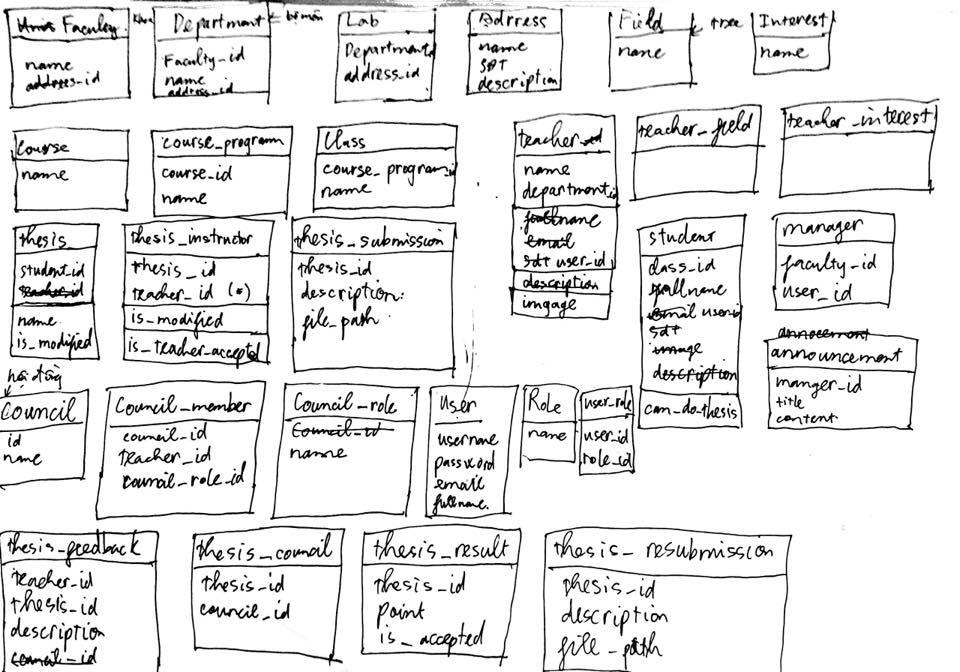 Faculty
name
address_id
khoa
Department
Faculty_id
name
address_id
bộ môn
Lab
Departmentd
address_id
Adrress
name
SDT
description
Field
name
tree
Interest
name
Course
name
course_program
course_id
name
Class
course_program_id
name
teacher
name
department_id
fullname
email
sdt user_id
description
imgage
teacher_field
teacher_interest
thesis
student_id
teacher_id
name
is_modified
thesis_instructor
thesis_id
teacher_id (*)
is_modified
is_teacher_accepted
thesis_submission
thesis_id
description
file_path
student
class_id
fullname
email user_id
sdt
image
description
can_do_thesis
manager
faculty_id
user_id
annocement
announcement
manger_id
title
content
hội đồng
Council
id
name
Council_member
council_id
teacher_id
council_role_id
Council_role
Council_id
name
user
username
password
email
fullname
Role
name
user_role
user_id
role_id
thesis_feedback
teacher_id
thesis_id
description
council_id
thesis_council
thesis_id
council_id
thesis_result
thesis_id
point
is_accepted
thesis_resubmission
thesis_id
description
file_path